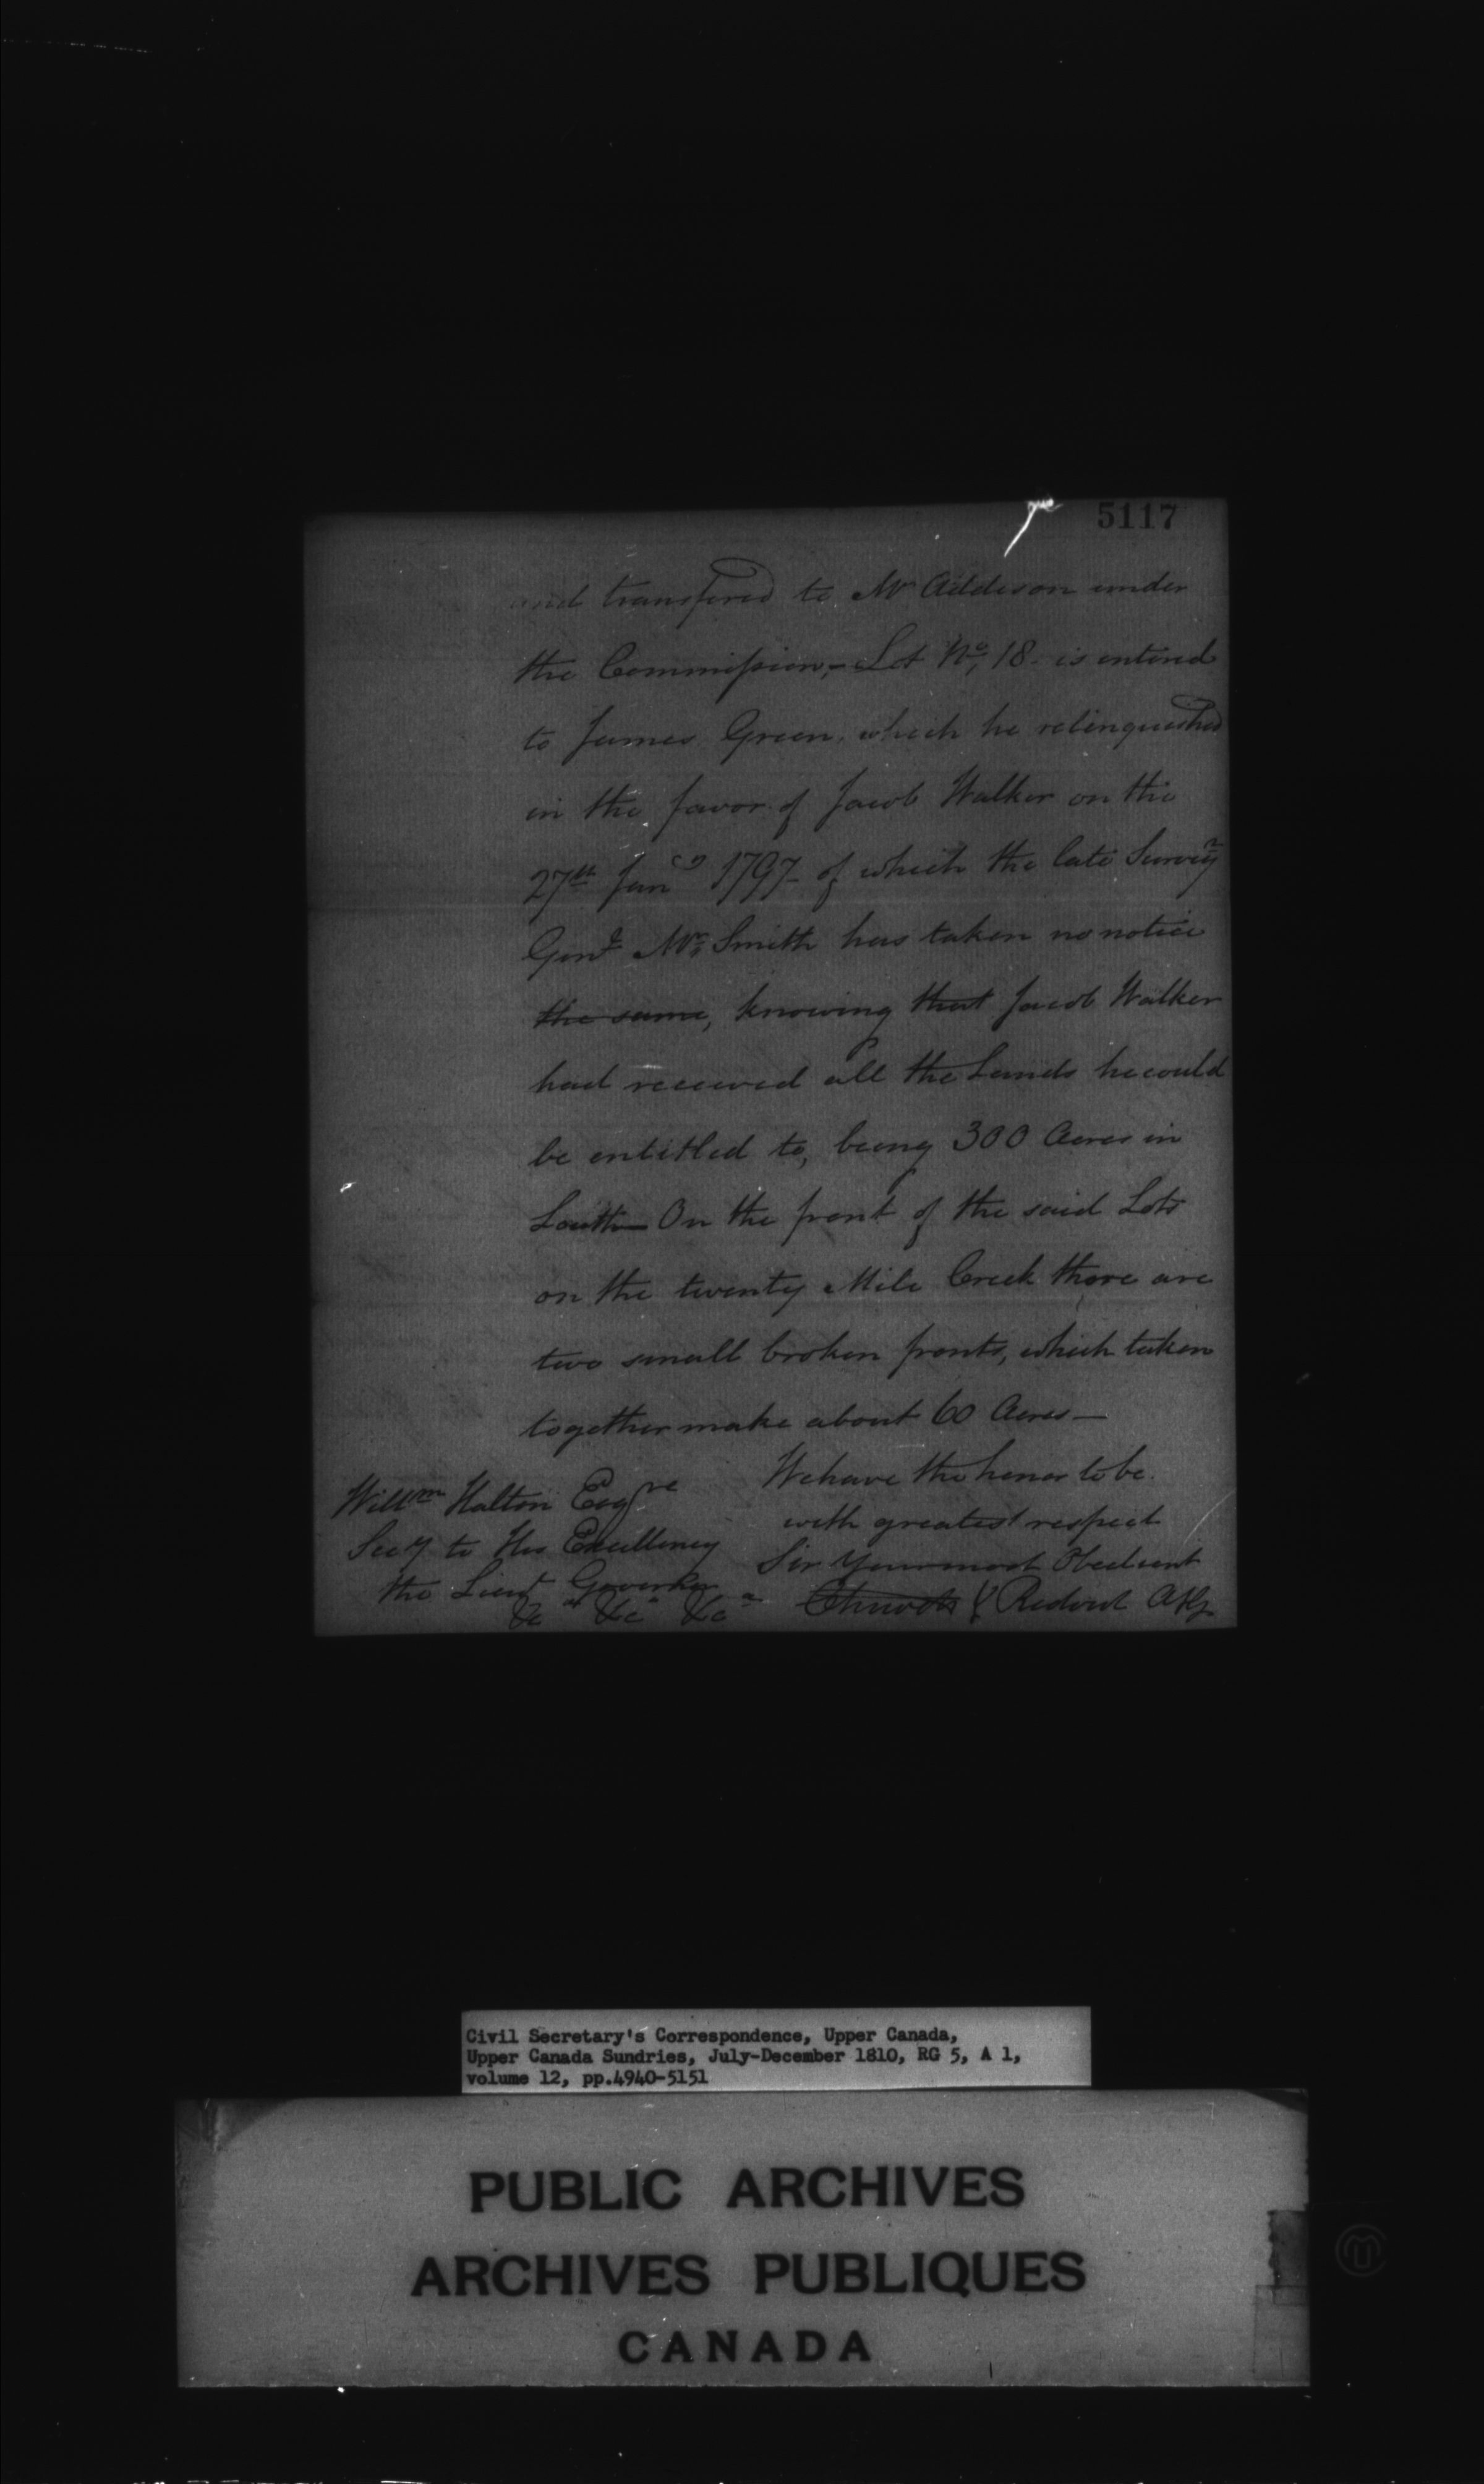 5117
and transfered to Mr Addison under
the Commission,- Lot No, 18 - is entered
to James Green, which he relinquished
in the favor of Jacob Walker on the
27th Jany 1797 - of which the late Surveyr
Genl Mr, Smith has taken no notice
the same, knowing that Jacob Walker
had received all the Lands he could
be entitled to, being 300 Acres in
Louth — On the front of the said Lots
on the twenty Mile Creek there are
two small broken fronts, which taken
together make about 60 Acres —
We have the honor to be
with greatest respect
Sir Your most Obedient
Chewett & Ridout Actg
Willm Halton Esqre
Secy to His Excellency
the Lieut Governor
&c &c &c
Civil Secretary's Correspondence, Upper Canada,
Upper Canada Sundries, July-December 1810, RG 5, A 1,
volume 12, pp.4940-5151
PUBLIC ARCHIVES
ARCHIVES PUBLIQUES
CANADA